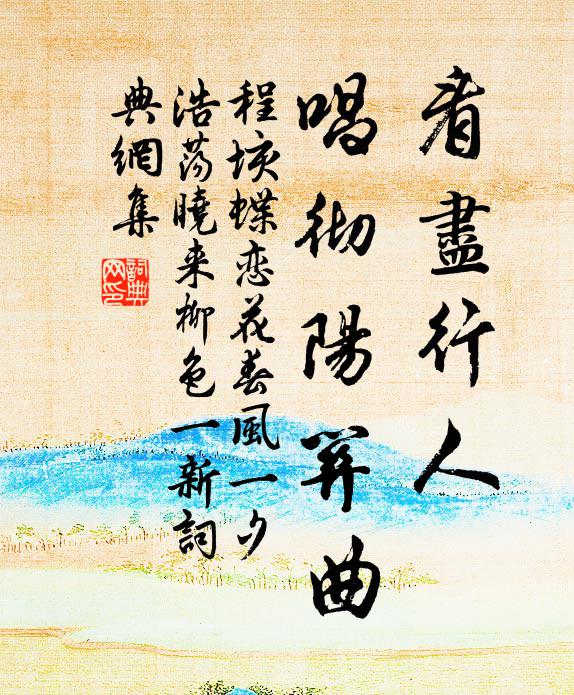 看盡行人
唱彻陽關曲
程垓蝶恋花春風一夕
浩荡曉来柳色一新詞
典網集
詞典
网印